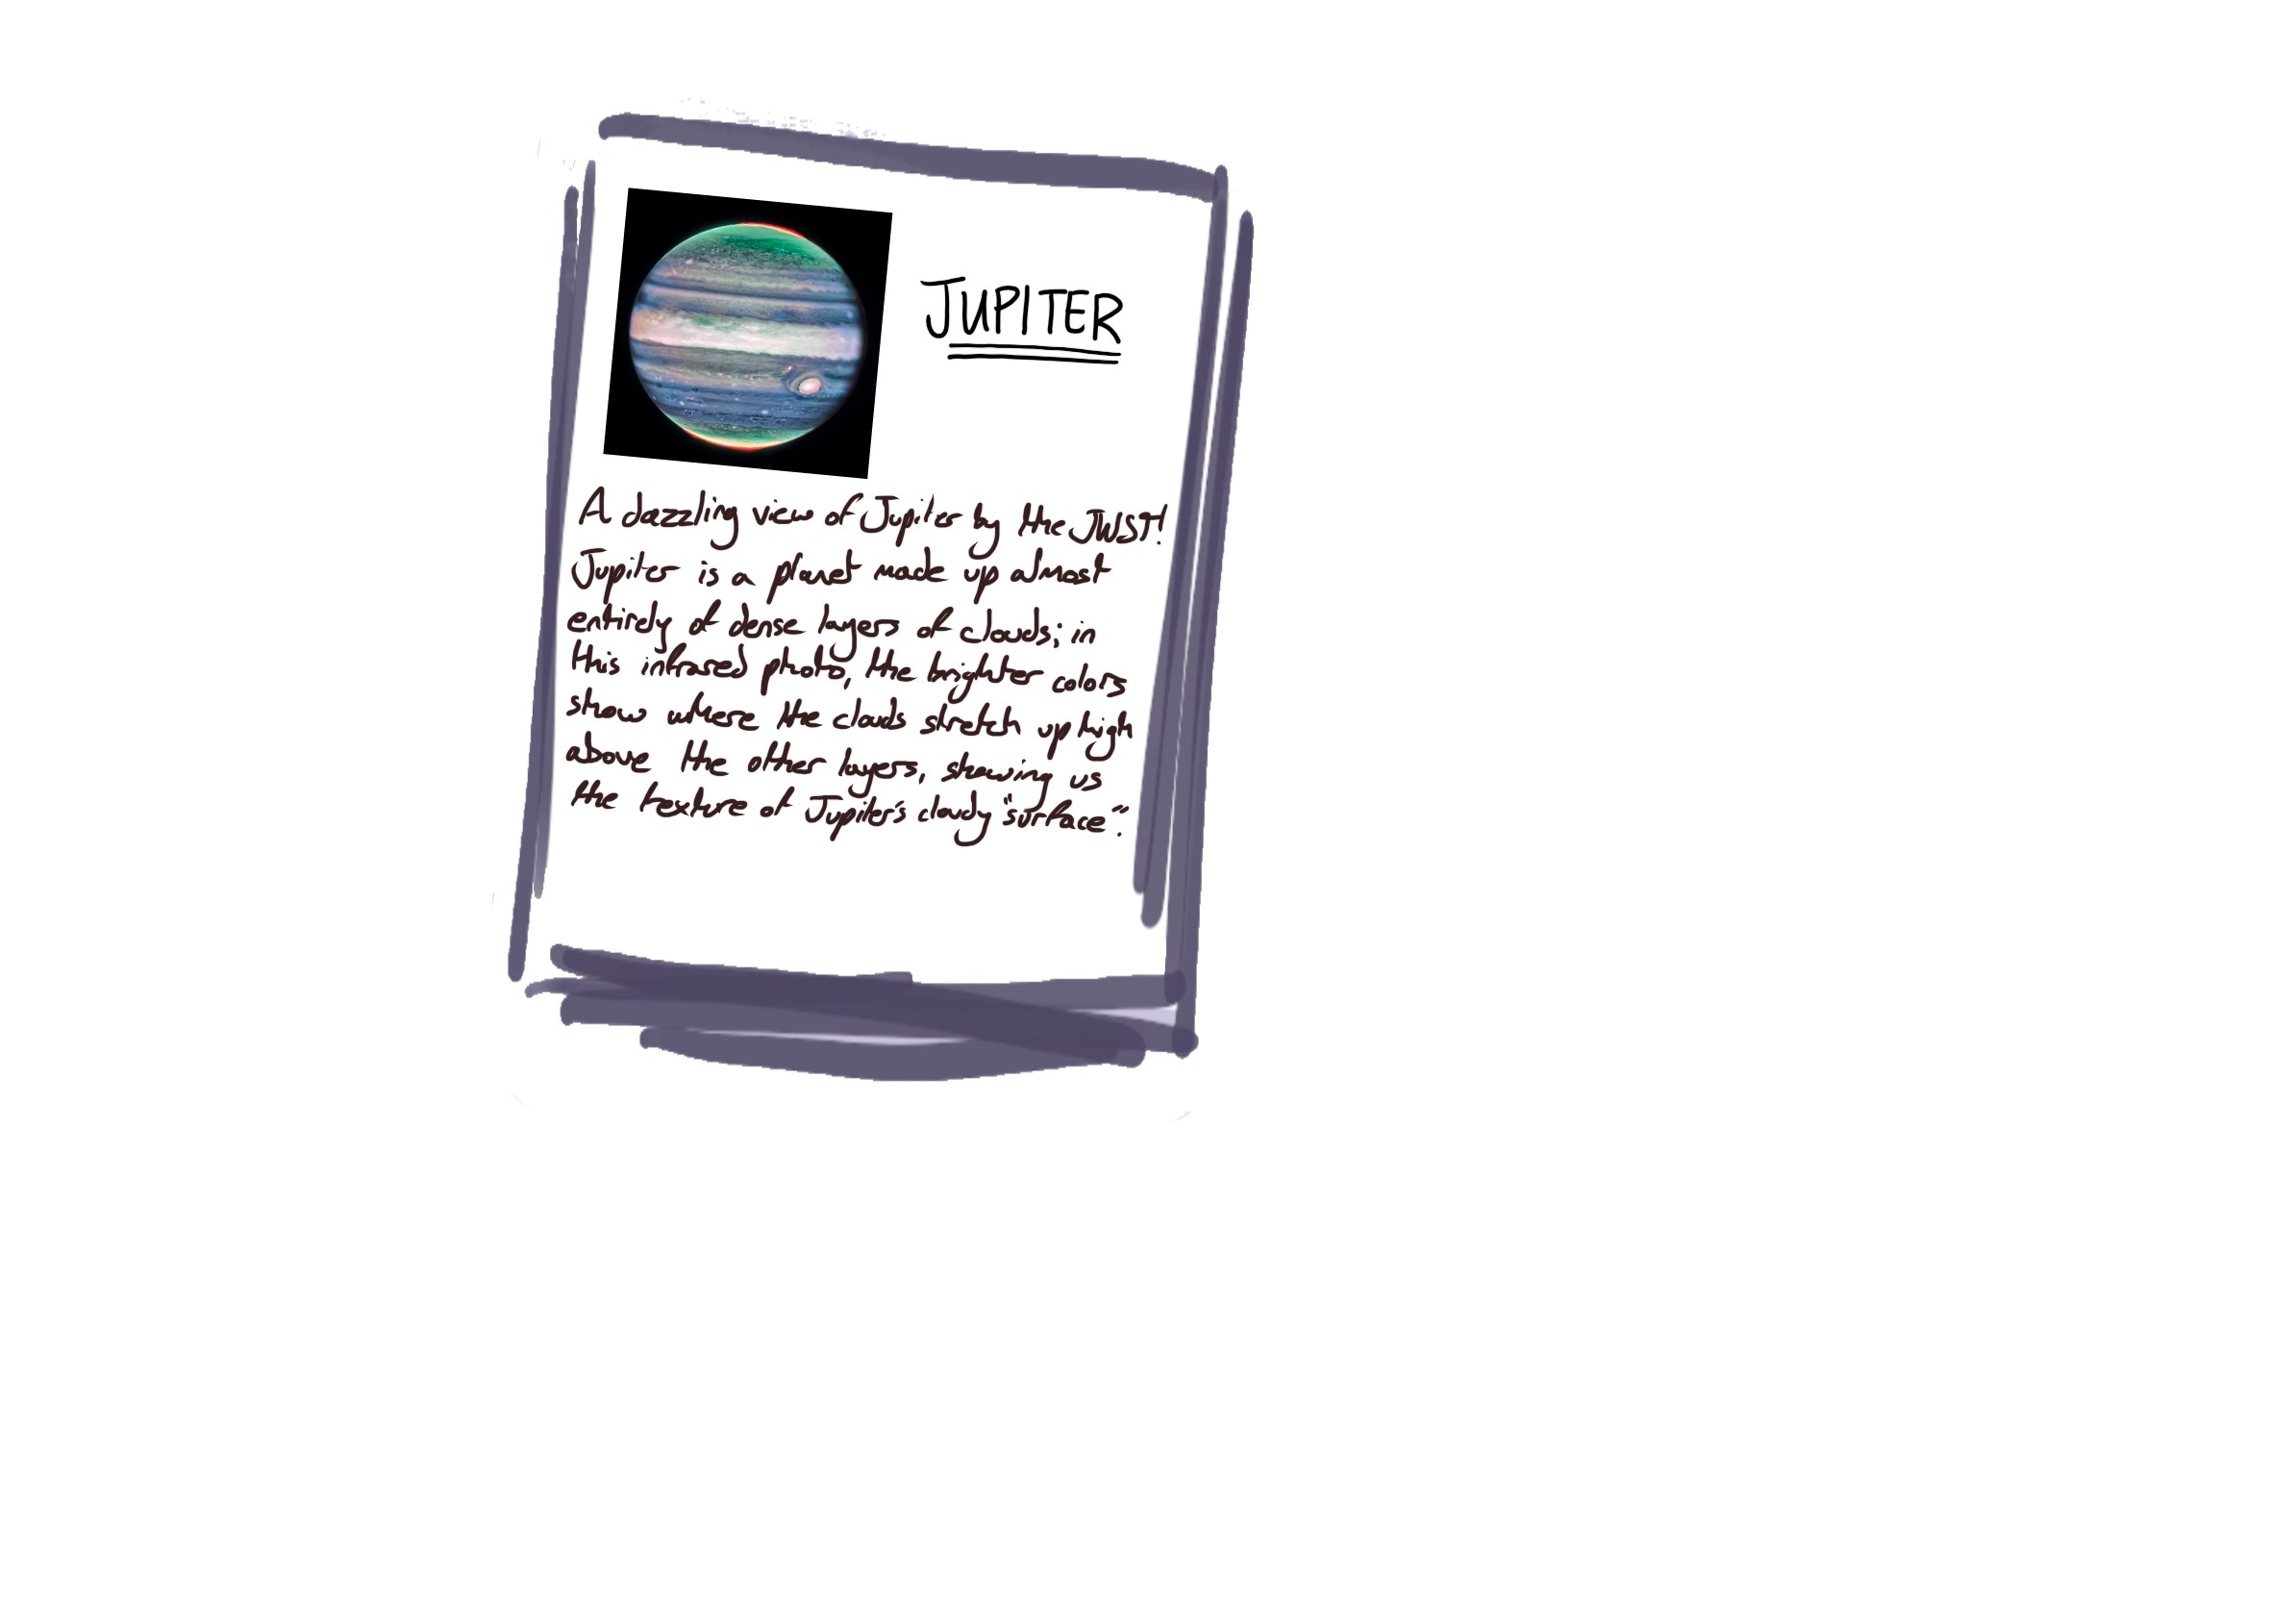 JUPITER
A dazzling view of Jupiter by the JWST!
Jupiter is a planet made up almost
entirely of dense layers of clouds; in
this infrared photo, the brighter colors
show where the clouds stretch up high
above the other layers, showing us
the texture of Jupiter's cloudy "surface".